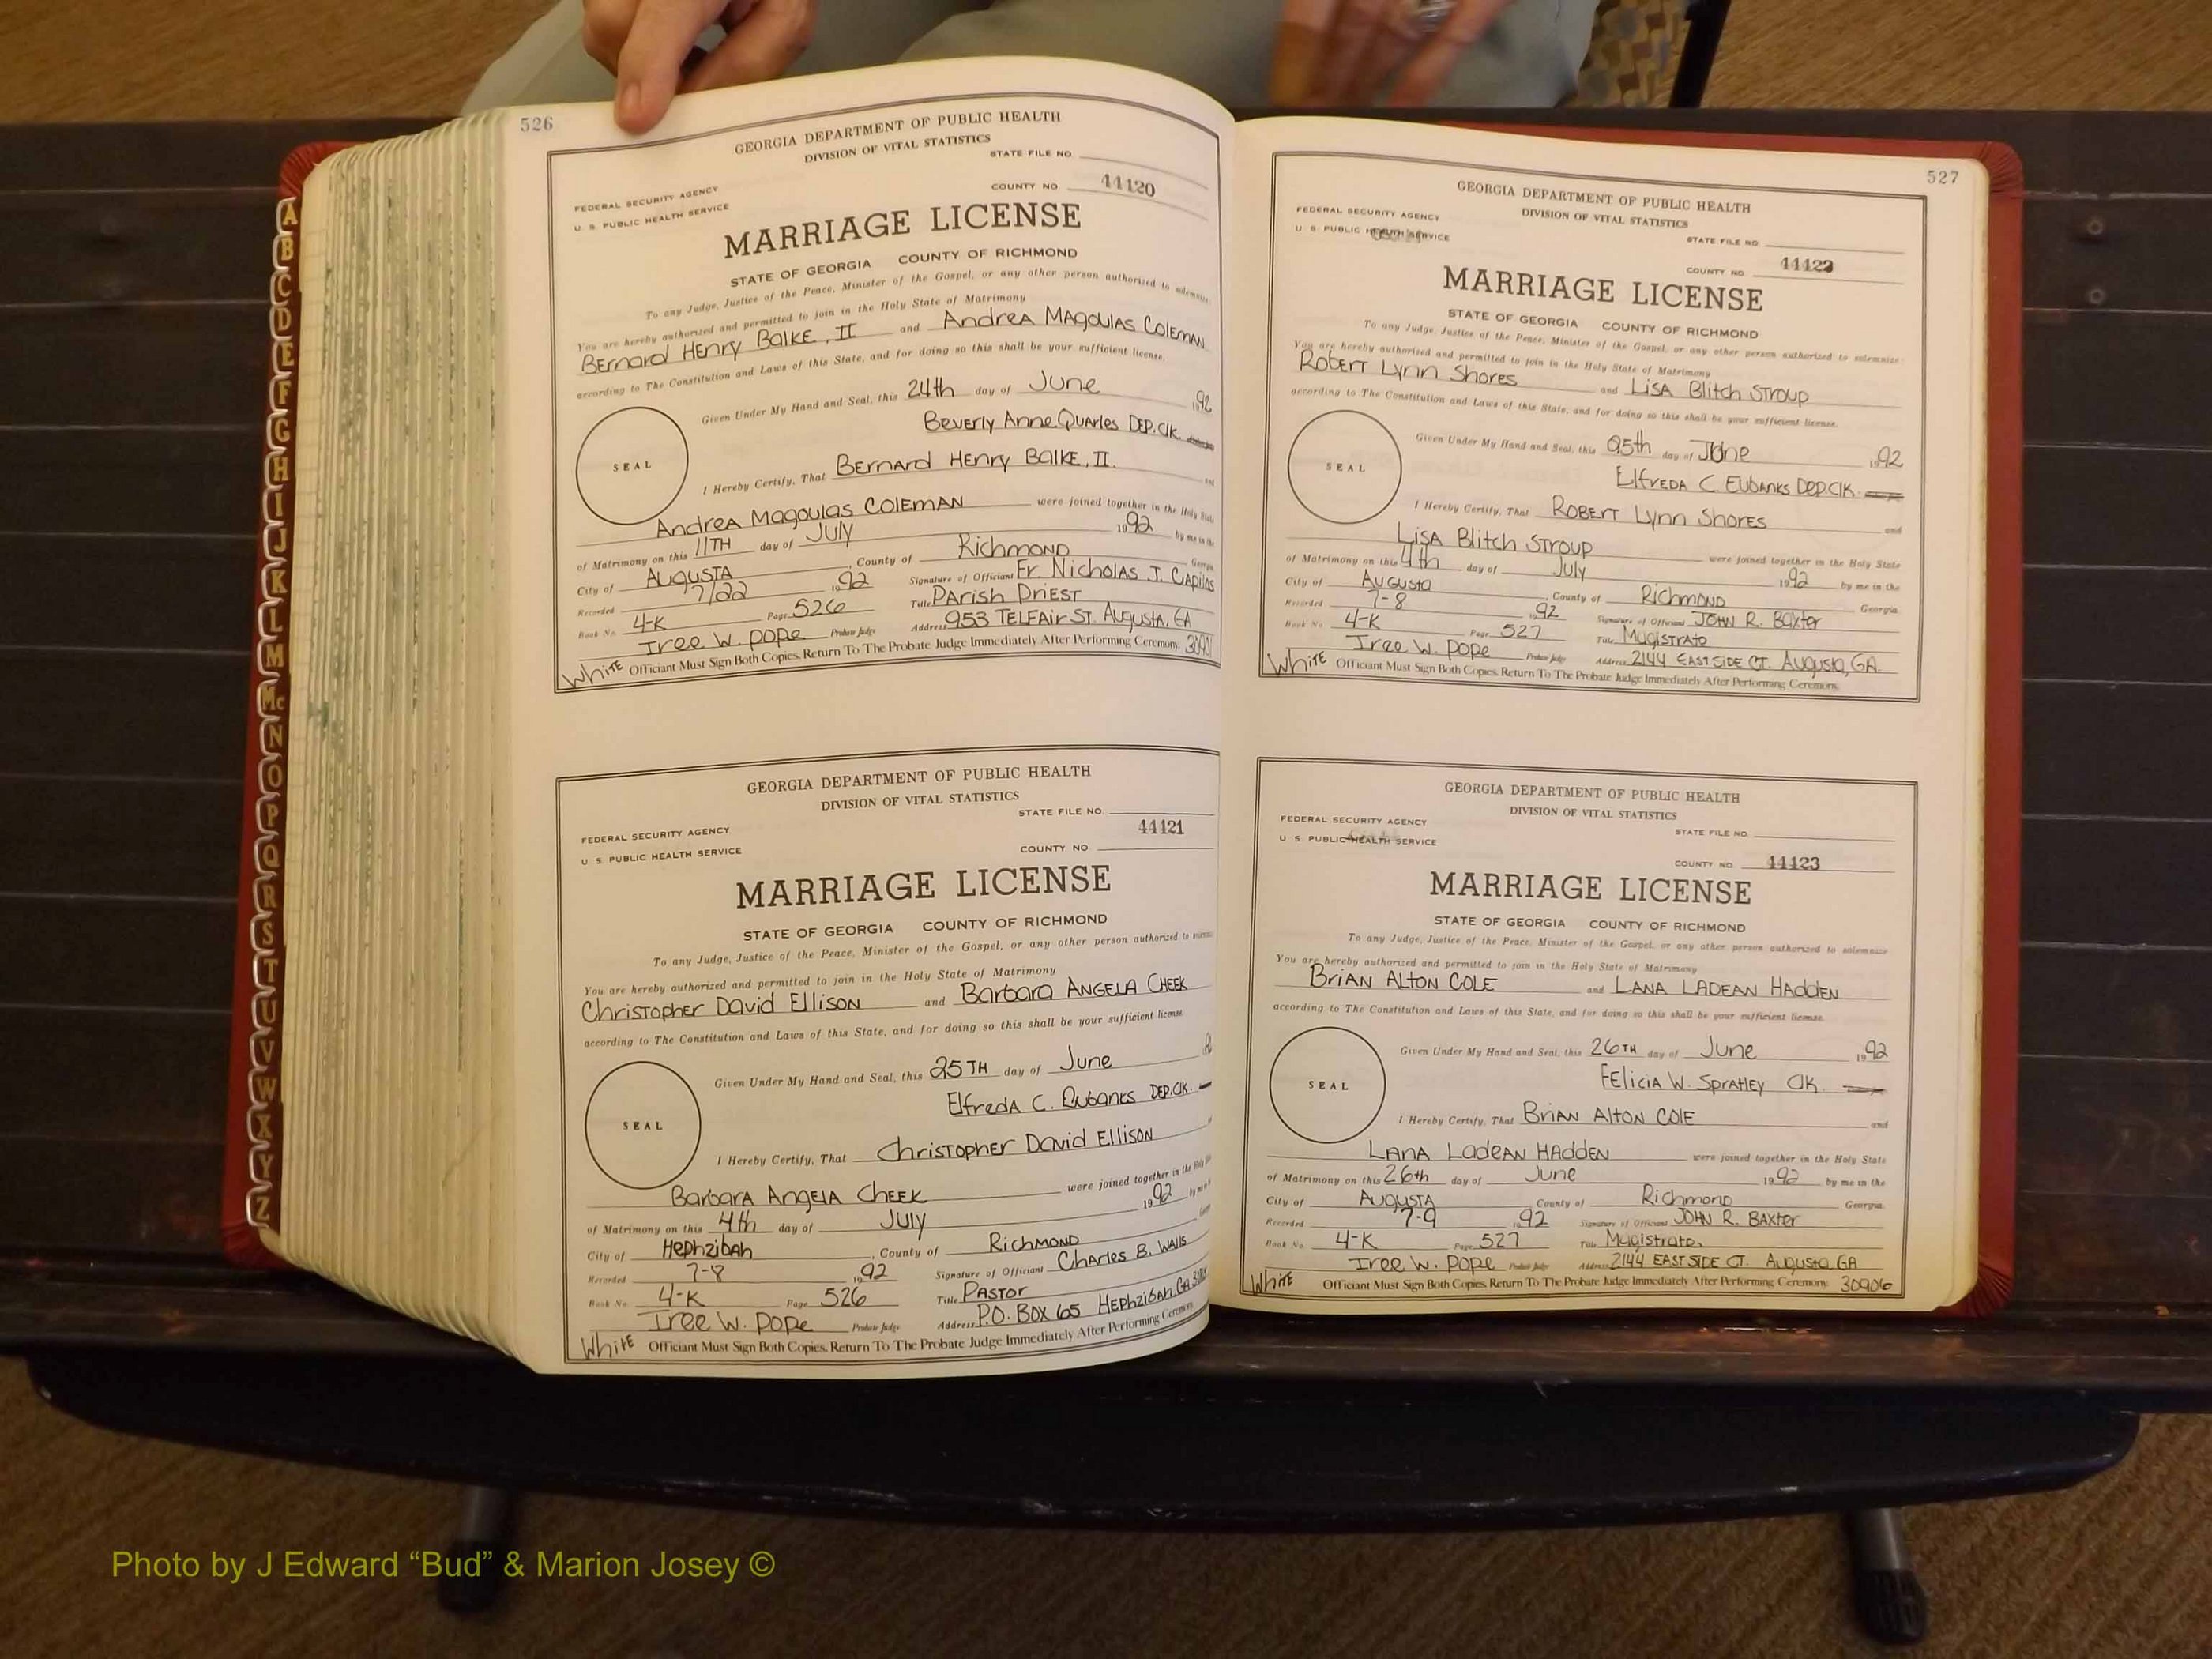 526
GEORGIA DEPARTMENT OF PUBLIC HEALTH
DIVISION OF VITAL STATISTICS
STATE FILE NO.
FEDERAL SECURITY AGENCY
COUNTY NO. 44120
U. S. PUBLIC HEALTH SERVICE
MARRIAGE LICENSE
STATE OF GEORGIA COUNTY OF RICHMOND
To any Judge, Justice of the Peace, Minister of the Gospel, or any other person authorized to solemnize
You are hereby authorized and permitted to join in the Holy State of Matrimony
Bernard Henry Balke, II and Andrea Magoulas Coleman
according to The Constitution and Laws of this State, and for doing so this shall be your sufficient license.
Given Under My Hand and Seal, this 24th day of June 1992
Beverly Anne Quarles Dep. Clk.
SEAL
I Hereby Certify, That Bernard Henry Balke, II. and
Andrea Magoulas Coleman were joined together in the Holy State
of Matrimony on this 11th day of July 1992 by me in the
City of Augusta, County of Richmond Georgia
Recorded 7/22 1992 Signature of Officiant Fr. Nicholas J. Capilos
Book No. 4-K Page 526 Title Parish Priest
Iree W. Pope Probate Judge Address 953 Telfair St. Augusta, GA
White Officiant Must Sign Both Copies. Return To The Probate Judge Immediately After Performing Ceremony. 30901
GEORGIA DEPARTMENT OF PUBLIC HEALTH
DIVISION OF VITAL STATISTICS
STATE FILE NO.
FEDERAL SECURITY AGENCY
44121
U. S. PUBLIC HEALTH SERVICE
COUNTY NO.
MARRIAGE LICENSE
STATE OF GEORGIA COUNTY OF RICHMOND
To any Judge, Justice of the Peace, Minister of the Gospel, or any other person authorized to
You are hereby authorized and permitted to join in the Holy State of Matrimony
Christopher David Ellison and Barbara Angela Cheek
according to The Constitution and Laws of this State, and for doing so this shall be your sufficient license.
Given Under My Hand and Seal, this 25th day of June
Elfreda C. Eubanks Dep. Clk.
SEAL
I Hereby Certify, That Christopher David Ellison
Barbara Angela Cheek were joined together in the Holy
of Matrimony on this 4th day of July 1992 by me in
City of Hephzibah, County of Richmond
Recorded 7-8 1992 Signature of Officiant Charles B. Walls
Book No. 4-K Page 526 Title Pastor
Iree W. Pope Probate Judge Address P.O. Box 65 Hephzibah, GA
White Officiant Must Sign Both Copies. Return To The Probate Judge Immediately After Performing Ceremony.
527
GEORGIA DEPARTMENT OF PUBLIC HEALTH
DIVISION OF VITAL STATISTICS
FEDERAL SECURITY AGENCY
U. S. PUBLIC HEALTH SERVICE
STATE FILE NO.
COUNTY NO. 44122
MARRIAGE LICENSE
STATE OF GEORGIA COUNTY OF RICHMOND
To any Judge, Justice of the Peace, Minister of the Gospel, or any other person authorized to solemnize:
You are hereby authorized and permitted to join in the Holy State of Matrimony
Robert Lynn Shores and Lisa Blitch Stroup
according to The Constitution and Laws of this State, and for doing so this shall be your sufficient license.
Given Under My Hand and Seal, this 25th day of June 1992
Elfreda C. Eubanks Dep. Clk.
SEAL
I Hereby Certify, That Robert Lynn Shores and
Lisa Blitch Stroup were joined together in the Holy State
of Matrimony on this 4th day of July 1992 by me in the
City of Augusta, County of Richmond Georgia.
Recorded 7-8 1992 Signature of Officiant John R. Baxter
Book No. 4-K Page 527 Title Magistrate
Iree W. Pope Probate Judge Address 2144 East Side Ct. Augusta, GA.
White Officiant Must Sign Both Copies. Return To The Probate Judge Immediately After Performing Ceremony.
GEORGIA DEPARTMENT OF PUBLIC HEALTH
DIVISION OF VITAL STATISTICS
FEDERAL SECURITY AGENCY
U. S. PUBLIC HEALTH SERVICE
STATE FILE NO.
COUNTY NO. 44123
MARRIAGE LICENSE
STATE OF GEORGIA COUNTY OF RICHMOND
To any Judge, Justice of the Peace, Minister of the Gospel, or any other person authorized to solemnize
You are hereby authorized and permitted to join in the Holy State of Matrimony
Brian Alton Cole and Lana Ladean Hadden
according to The Constitution and Laws of this State, and for doing so this shall be your sufficient license.
Given Under My Hand and Seal, this 26th day of June 1992
Felicia W. Spratley Clk.
SEAL
I Hereby Certify, That Brian Alton Cole and
Lana Ladean Hadden were joined together in the Holy State
of Matrimony on this 26th day of June 1992 by me in the
City of Augusta, County of Richmond Georgia.
Recorded 7-9 1992 Signature of Officiant John R. Baxter
Book No. 4-K Page 527 Title Magistrate
Iree W. Pope Probate Judge Address 2144 East Side Ct. Augusta GA
White Officiant Must Sign Both Copies. Return To The Probate Judge Immediately After Performing Ceremony. 30906
A
B
C
D
E
F
G
H
I
J
K
L
M
Mc
N
O
P
Q
R
S
T
U
V
W
X
Y
Z
Photo by J Edward “Bud” & Marion Josey ©